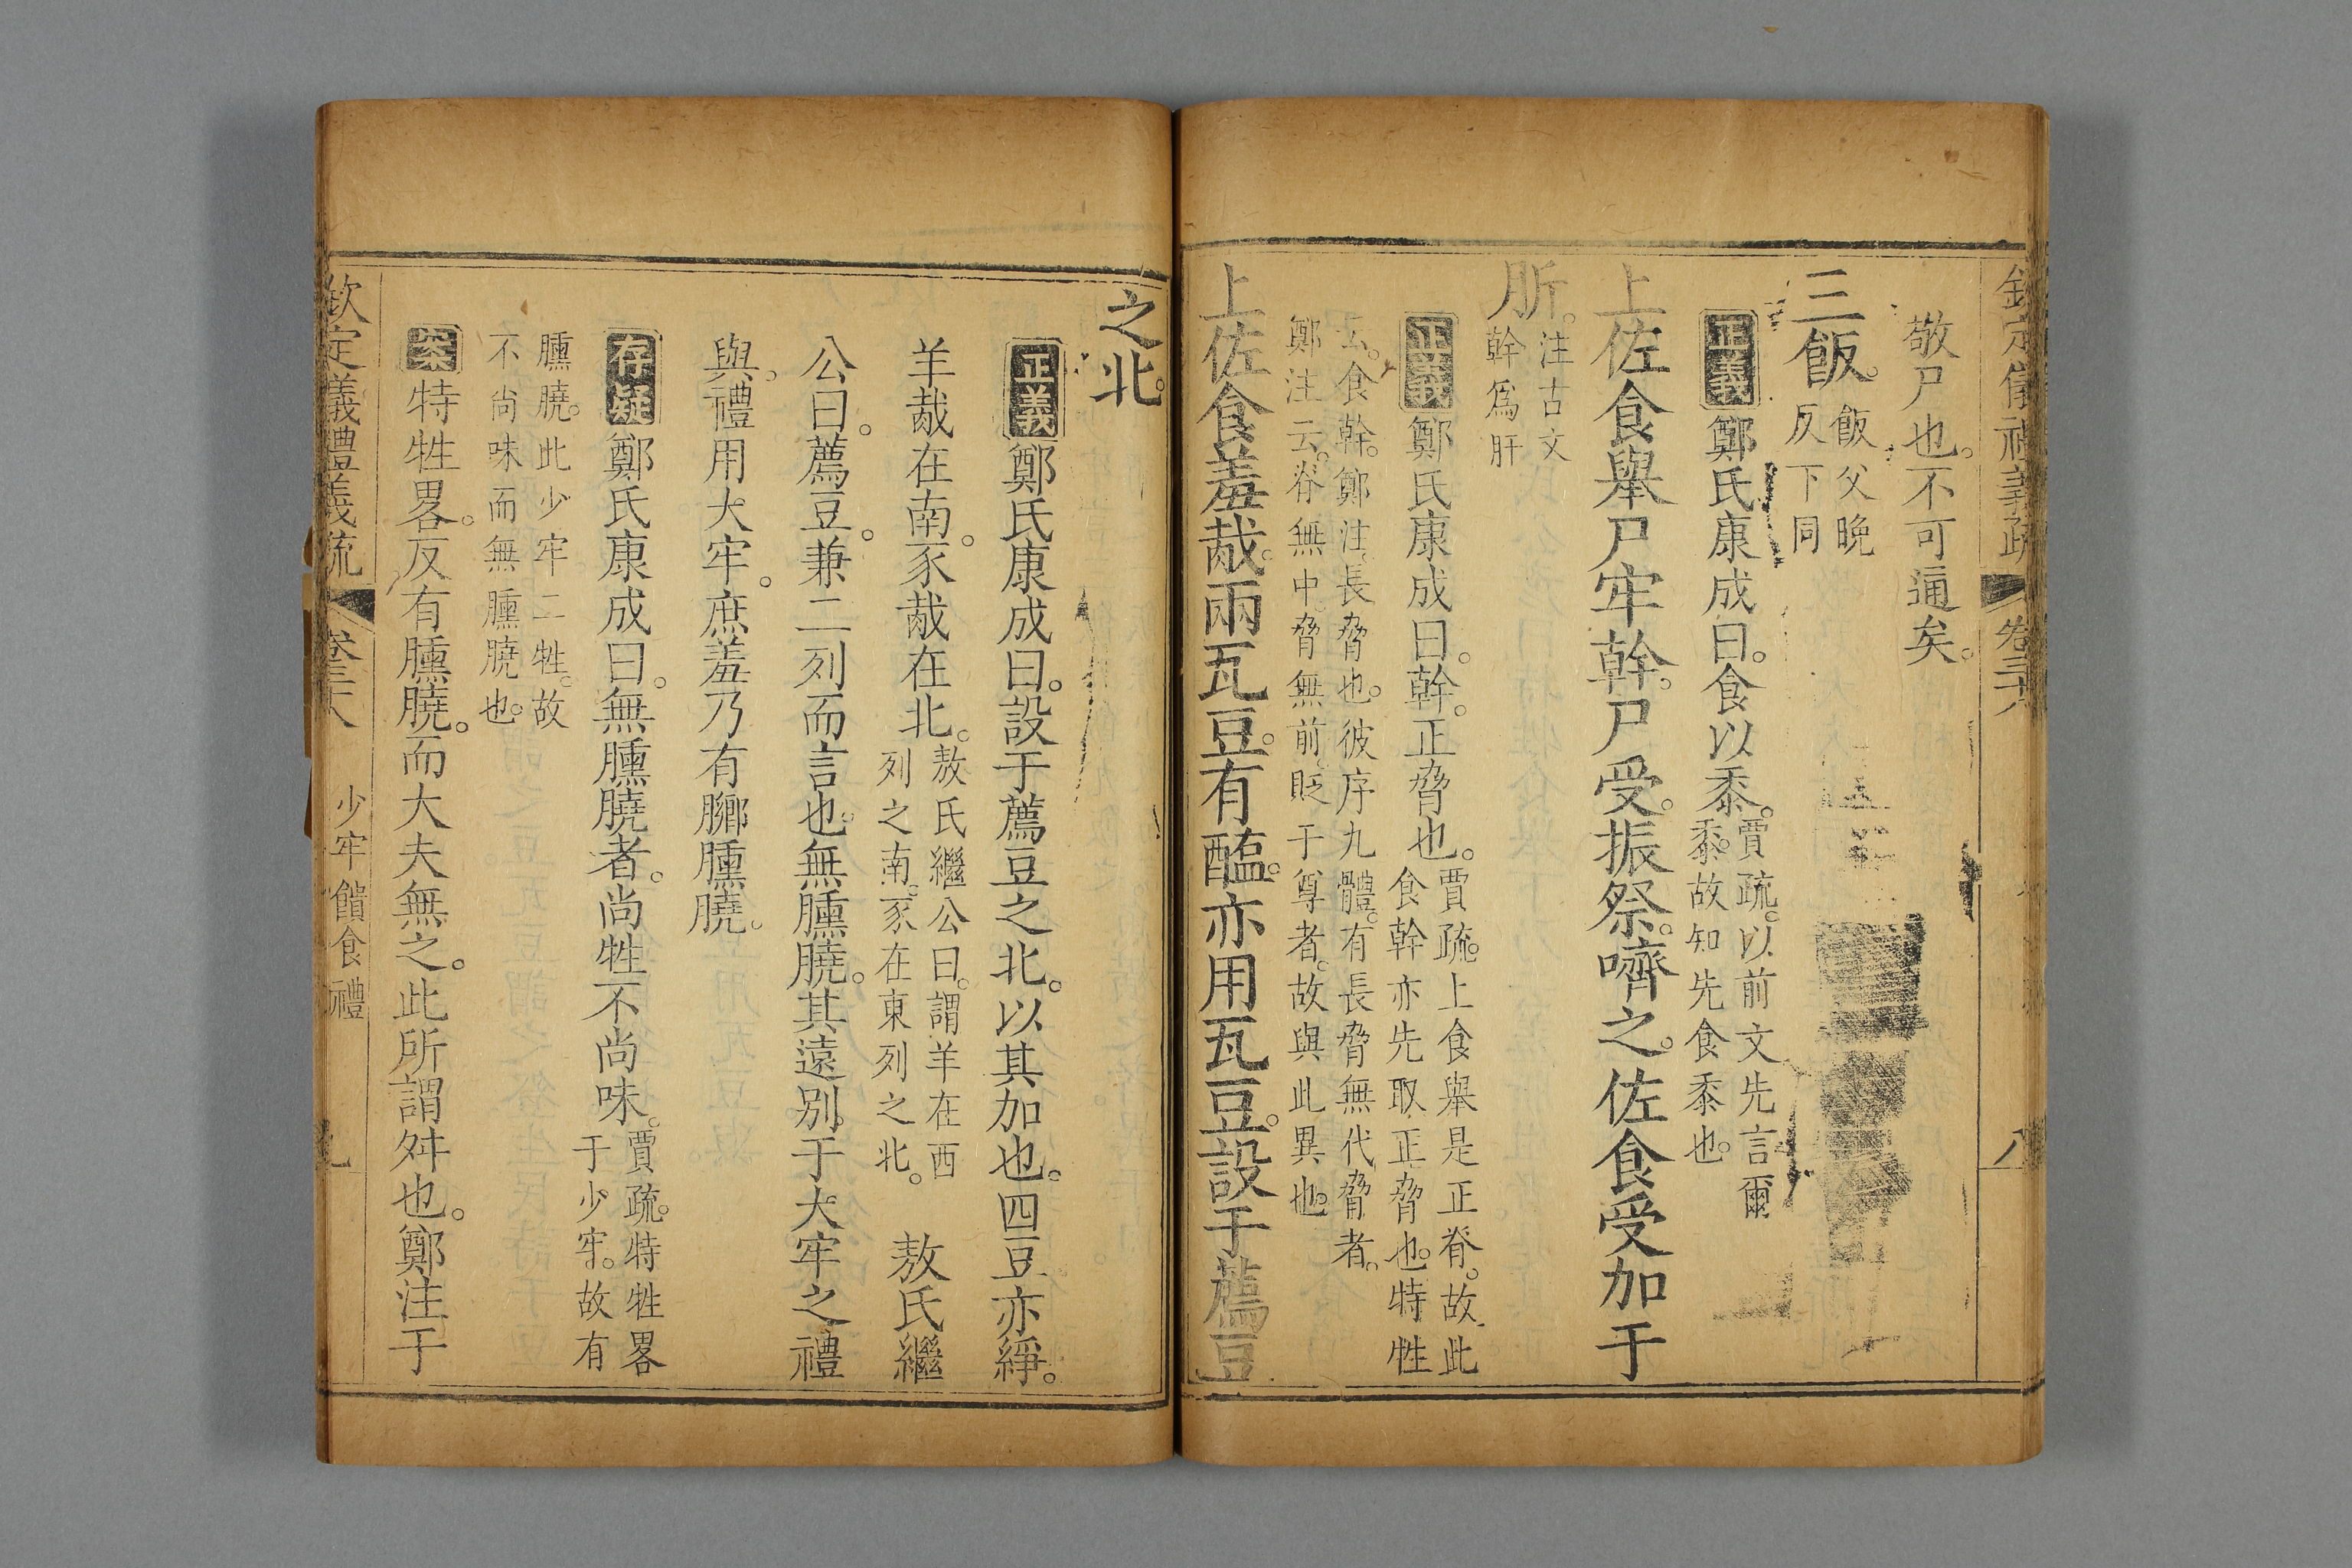 欽定儀禮義疏 卷三十八 八
敬尸也。不可通矣。
三飯。飯父晚反下同
正義鄭氏康成曰。食以黍。賈疏。以前文先言爾黍。故知先食黍也。
上佐食舉尸牢幹。尸受。振祭。嚌之。佐食受加于
肵。注古文幹爲肝
正義鄭氏康成曰。幹。正脅也。賈疏。上食舉是正脊。故此食幹亦先取正脅也。特牲
云。食幹。鄭注。長脅也。彼序九體。有長脅無代脅者。鄭注云。脊無中。脅無前。貶于尊者。故與此異也。
上佐食羞胾。兩瓦豆。有醢。亦用瓦豆。設于薦豆
之北。
正義鄭氏康成曰。設于薦豆之北。以其加也。四豆亦綪。
羊胾在南。豕胾在北。敖氏繼公曰。謂羊在西列之南。豕在東列之北。 敖氏繼
公曰。薦豆。兼二列而言也。無臐膮。其遠別于大牢之禮
與。禮用大牢。庶羞乃有膷臐膮。
存疑鄭氏康成曰。無臐膮者。尚牲不尚味。賈疏。特牲畧于少牢。故有
臐膮。此少牢二牲。故不尚味而無臐膮也。
案特牲畧。反有臐膮。而大夫無之。此所謂舛也。鄭注于
欽定儀禮義疏 卷三十八 少牢饋食禮 九